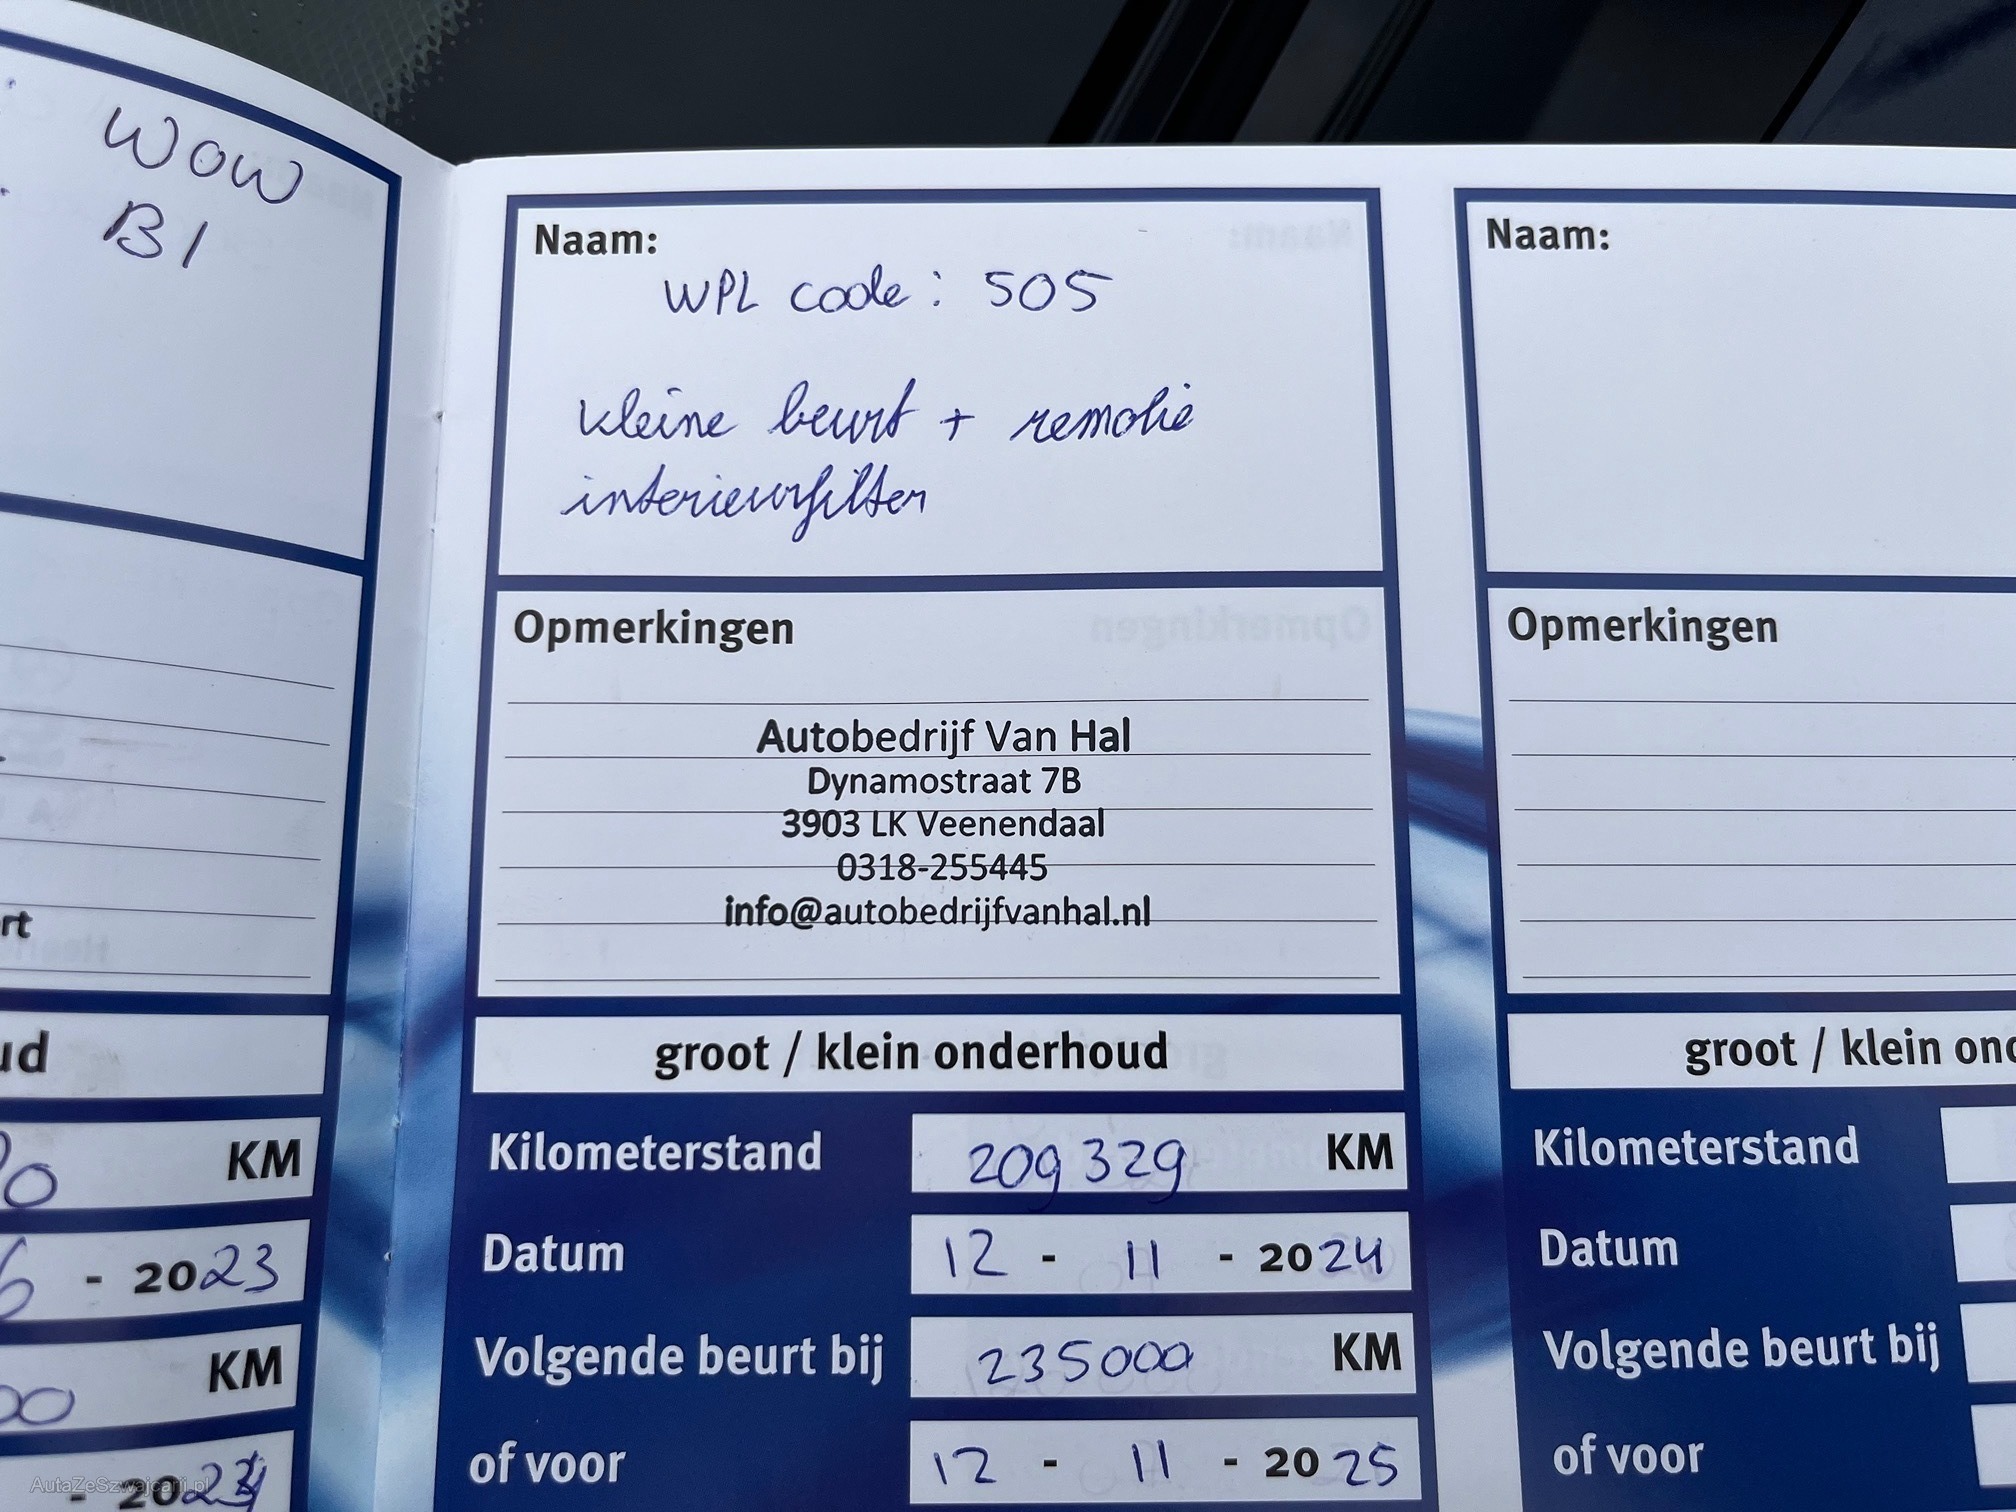 WOW
B1
rt
ud
KM
6 - 2023
KM
00
- 202
Naam:
WPL code: 505
kleine beurt + remolie
interieurfilter
Opmerkingen
Autobedrijf Van Hal
Dynamostraat 7B
3903 LK Veenendaal
0318-255445
info@autobedrijfvanhal.nl
groot / klein onderhoud
Kilometerstand 209329 KM
Datum 12 - 11 - 2024
Volgende beurt bij 235000 KM
of voor 12 - 11 - 2025
Naam:
Opmerkingen
groot / klein ond
Kilometerstand
Datum
Volgende beurt bij
of voor
AutaZeSzwajcarii.pl